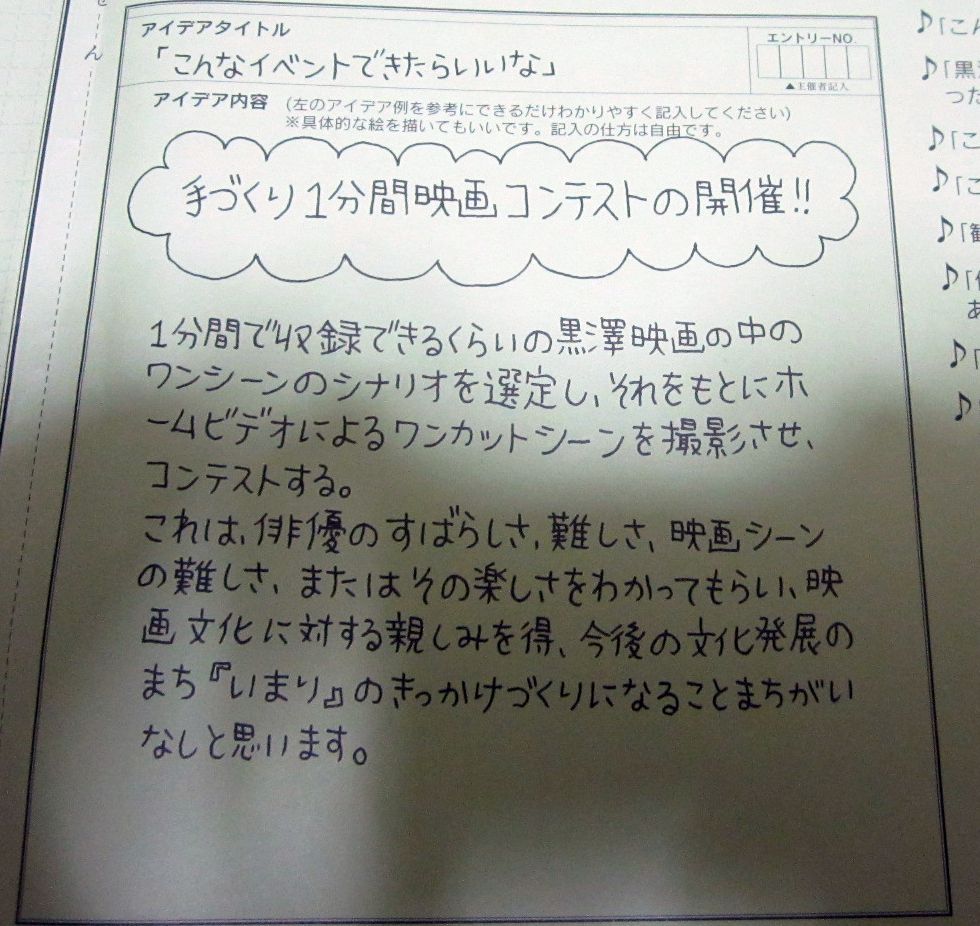 アイデアタイトル
「こんなイベントできたらいいな」
エントリーNO.
▲主催者記入
アイデア内容 (左のアイデア例を参考にできるだけわかりやすく記入してください)
※具体的な絵を描いてもいいです。記入の仕方は自由です。
手づくり1分間映画コンテストの開催!!
1分間で収録できるくらいの黒澤映画の中の
ワンシーンのシナリオを選定し、それをもとにホ
ームビデオによるワンカットシーンを撮影させ、
コンテストする。
これは、俳優のすばらしさ、難しさ、映画シーン
の難しさ、またはその楽しさをわかってもらい、映
画文化に対する親しみを得、今後の文化発展の
まち『いまり』のきっかけづくりになることまちがい
なしと思います。
ん
♪「こん
♪「黒
った
♪「こ
♪「こ
♪「
♪「
あ
♪「
♪